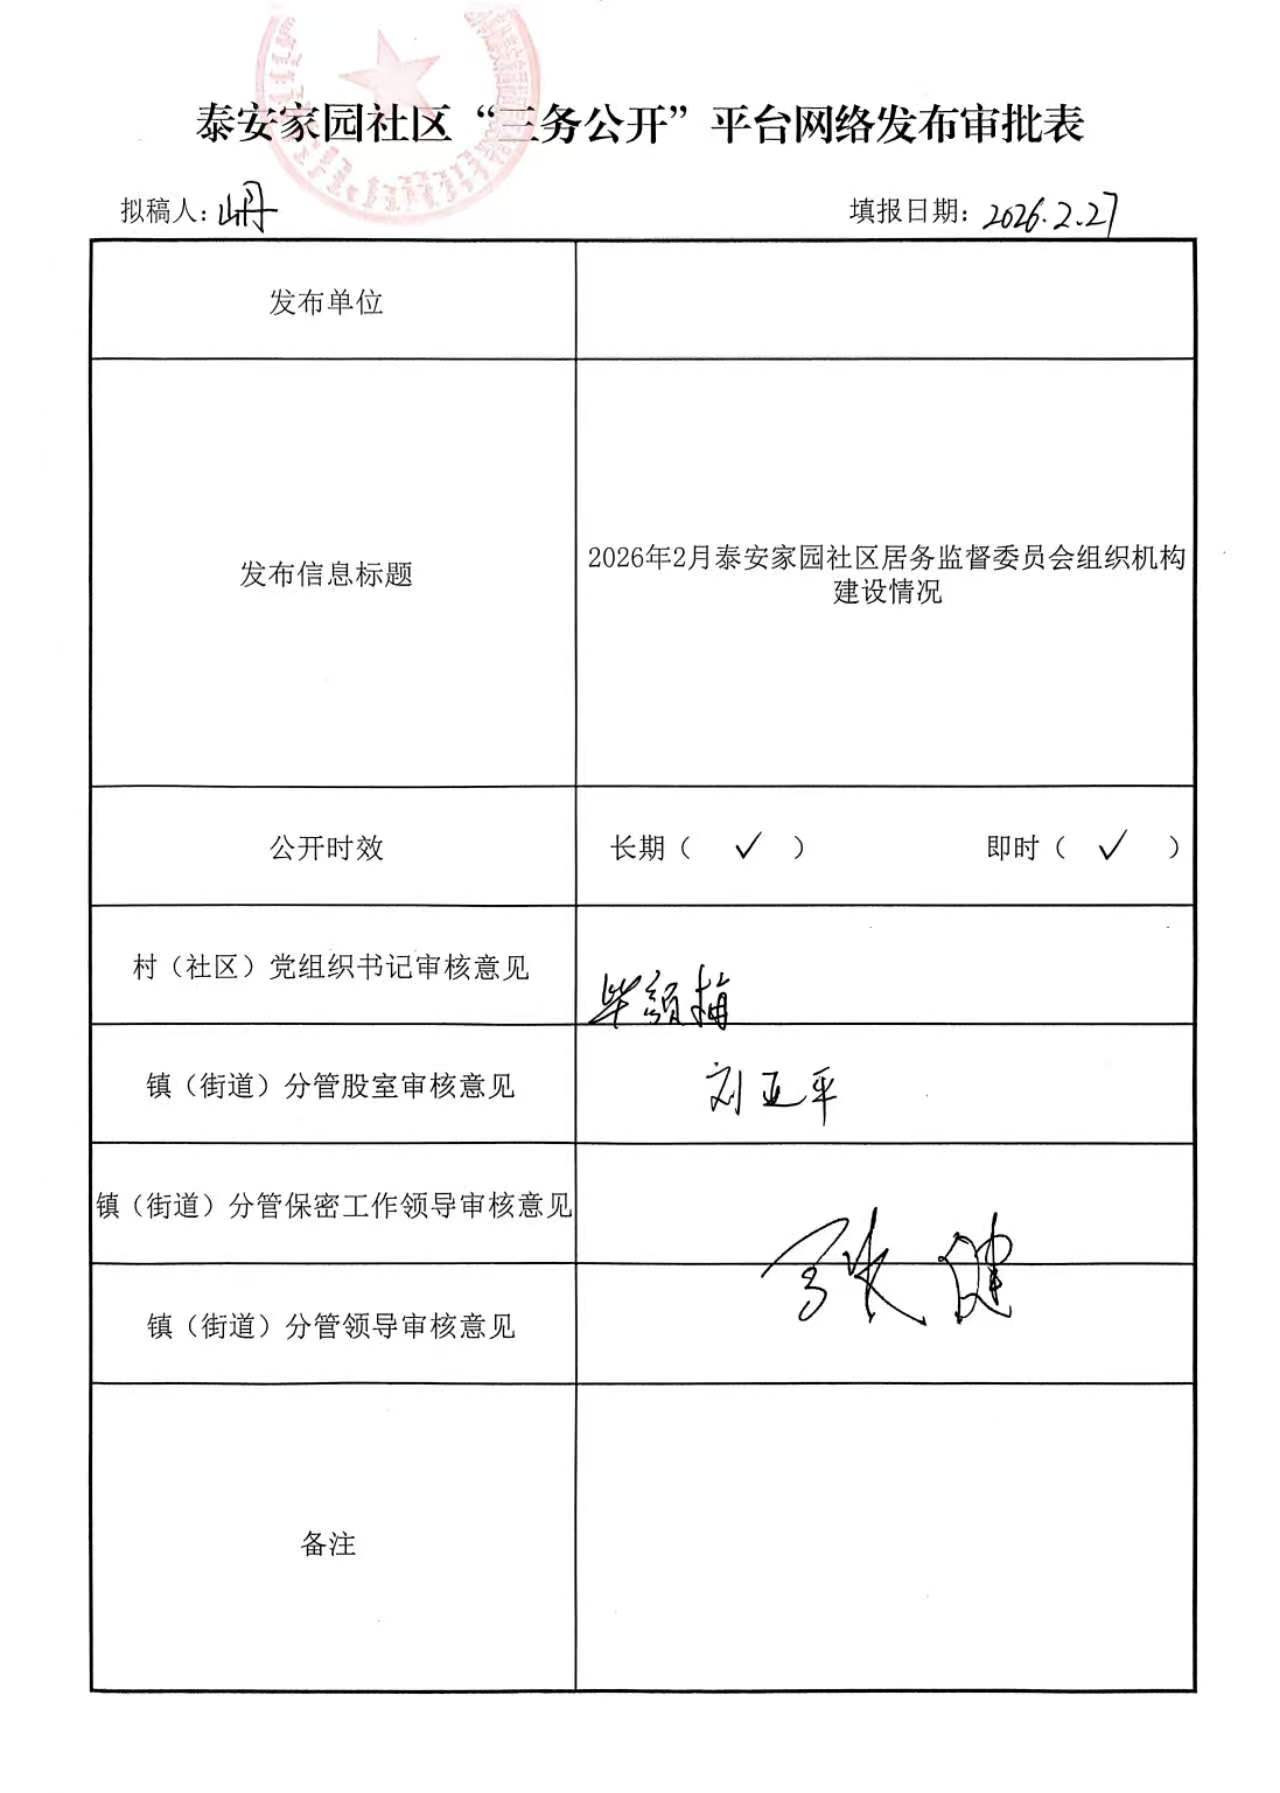 泰安家园社区“三务公开”平台网络发布审批表
拟稿人：山丹
填报日期：2026.2.27
发布单位
发布信息标题
2026年2月泰安家园社区居务监督委员会组织机构
建设情况
公开时效
长期（ ✓ ）
即时（ ✓ ）
村（社区）党组织书记审核意见
镇（街道）分管股室审核意见
刘亚平
镇（街道）分管保密工作领导审核意见
张健
镇（街道）分管领导审核意见
备注